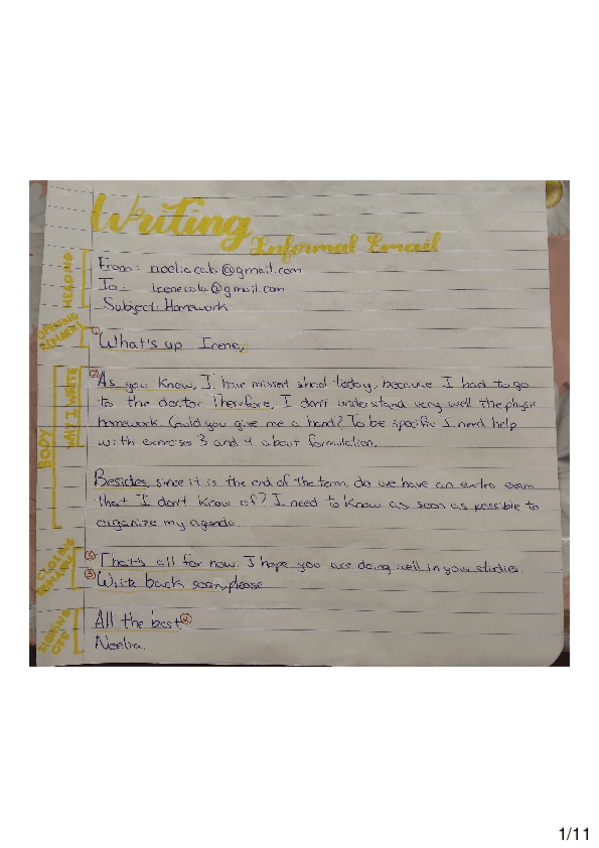 Writing
Informal Email
HEADING
From: noeliacab@gmail.com
To: irenecab@gmail.com
Subject: Homework
OPENING REMARK
① What's up Irene,
BODY
WHY I WRITE
② As you know, I have missed school today, because I had to go
to the doctor. Therefore, I don't understand very well the physic
homework. Could you give me a hand? To be specific I need help
with exercises 3 and 4 about formulation.
Besides, since it is the end of the term, do we have an extra exam
that I don't know of? I need to know as soon as possible to
organize my agenda.
CLOSING REMARK
That's all for now. I hope you are doing well in your studies.
③ Write back soon, please
SIGNING OFF
All the best ④
Noelia.
1/11